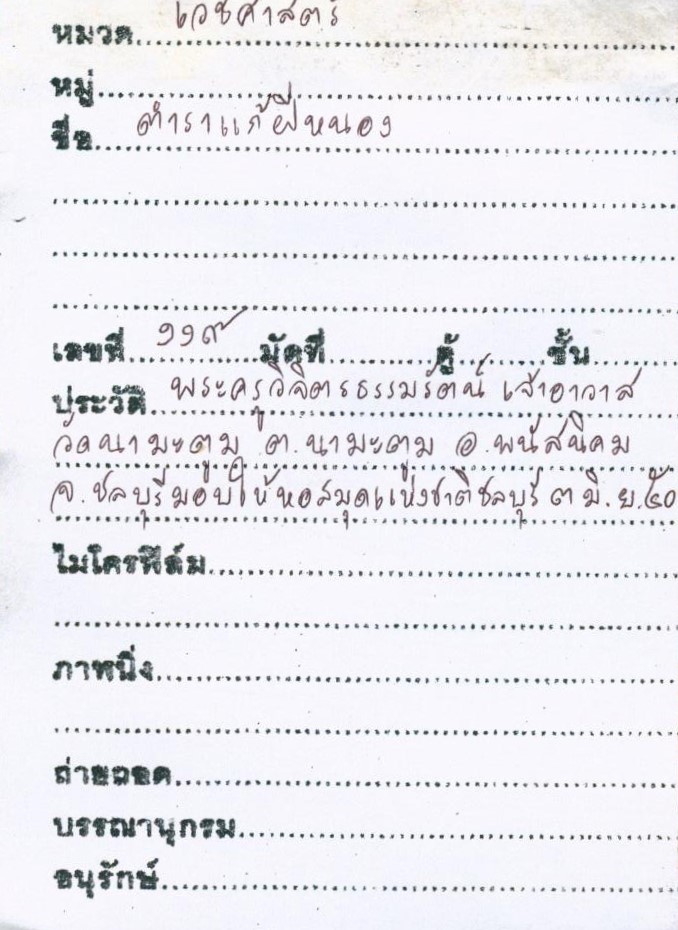 หมวด เวชศาสตร์
หมู่
ชื่อ ตำราแก้ฝีหนอง
เลขที่ ๑๑๙ มัดที่ ตู้ ชั้น
ประวัติ พระครูวิจิตรธรรมรัตน์ เจ้าอาวาส
วัดนามะตูม ต.นามะตูม อ.พนัสนิคม
จ.ชลบุรีมอบให้หอสมุดแห่งชาติชลบุรี ๓ มิ.ย.๕๐
ไมโครฟิล์ม
ภาพนิ่ง
ถ่ายถอด
บรรณานุกรม
อนุรักษ์